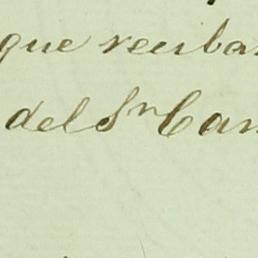 que reciba
del Sr Can